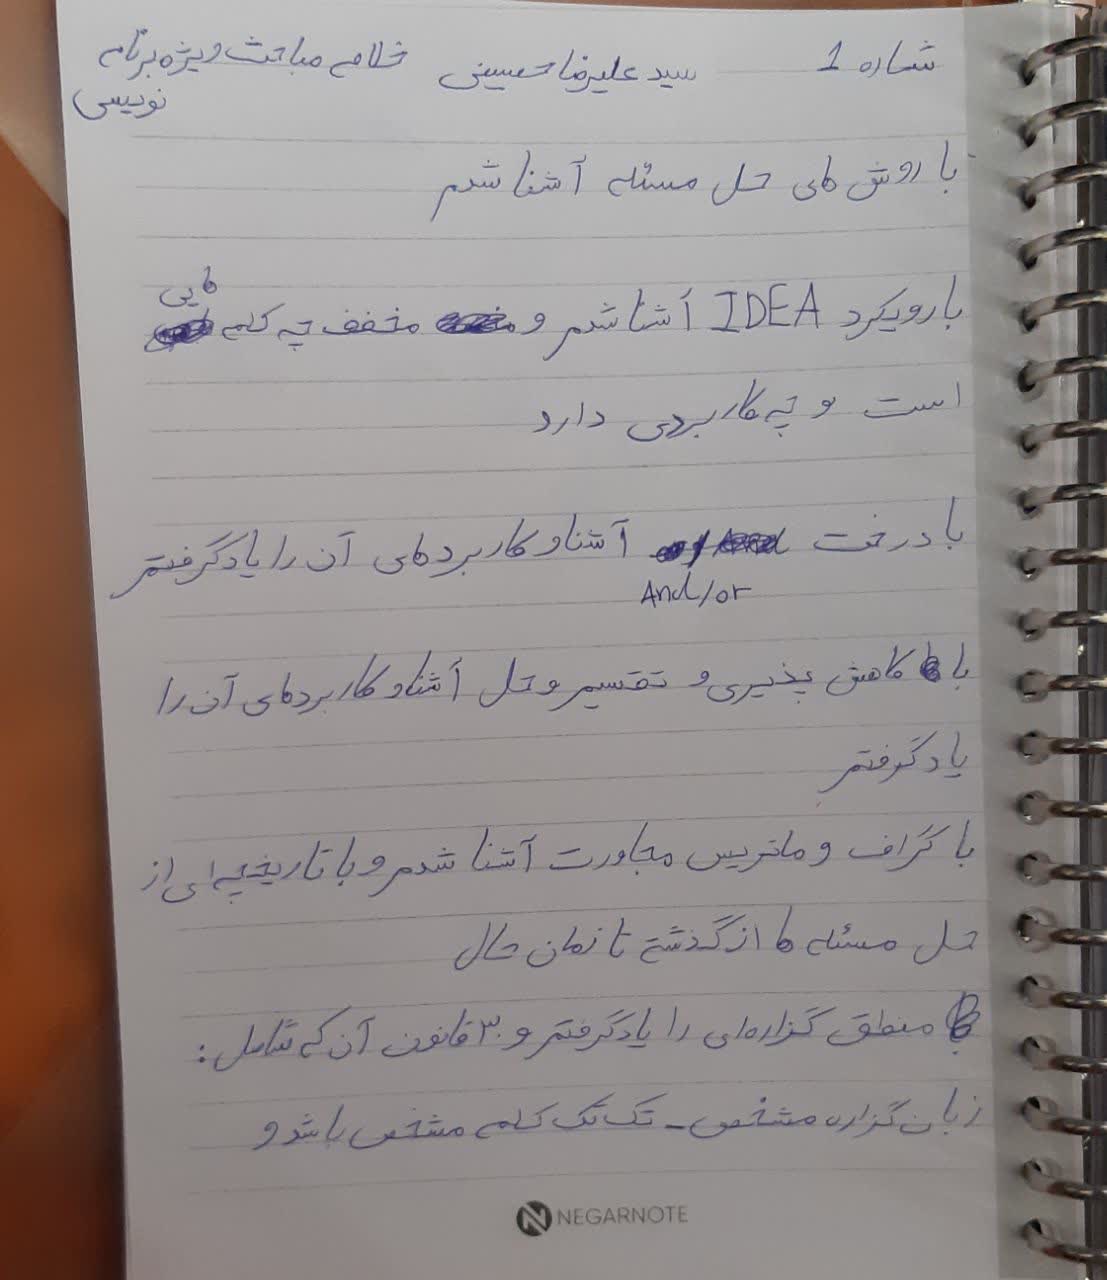 شماره 1 سید علیرضا حسینی خلاصه مباحث ویژه برنامه
نویسی
با روش های حل مسئله آشنا شدم
با رویکرد IDEA آشنا شدم و مخفف چه کلمه هایی
است و چه کاربردی دارد
با درخت And/or آشنا و کاربردهای آن را یاد گرفتم
با کاهش پذیری و تقسیم و حل آشنا و کاربردهای آن را
یاد گرفتم
با گراف و ماتریس مجاورت آشنا شدم و با تاریخچه ای از
حل مسئله ها از گذشته تا زمان حال
منطق گزاره‌ای را یاد گرفتم و ۳ قانون آن که شامل :
زبان گزاره مشخص - تک تک کلمه مشخص باشد و
NEGARNOTE